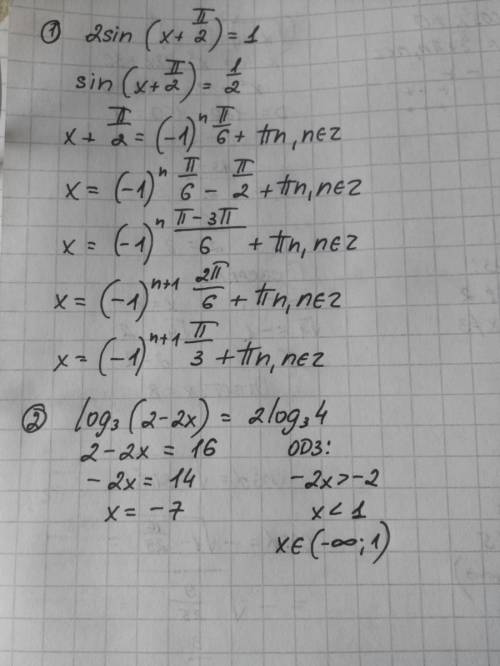 ① 2sin (x + π/2) = 1
sin (x + π/2) = 1/2
x + π/2 = (-1)ⁿ π/6 + πn, n∈z
x = (-1)ⁿ π/6 - π/2 + πn, n∈z
x = (-1)ⁿ (π - 3π)/6 + πn, n∈z
x = (-1)ⁿ⁺¹ 2π/6 + πn, n∈z
x = (-1)ⁿ⁺¹ π/3 + πn, n∈z
② log₃ (2 - 2x) = 2log₃4
2 - 2x = 16 ОДЗ:
- 2x = 14 -2x > -2
x = -7 x < 1
x∈(-∞; 1)